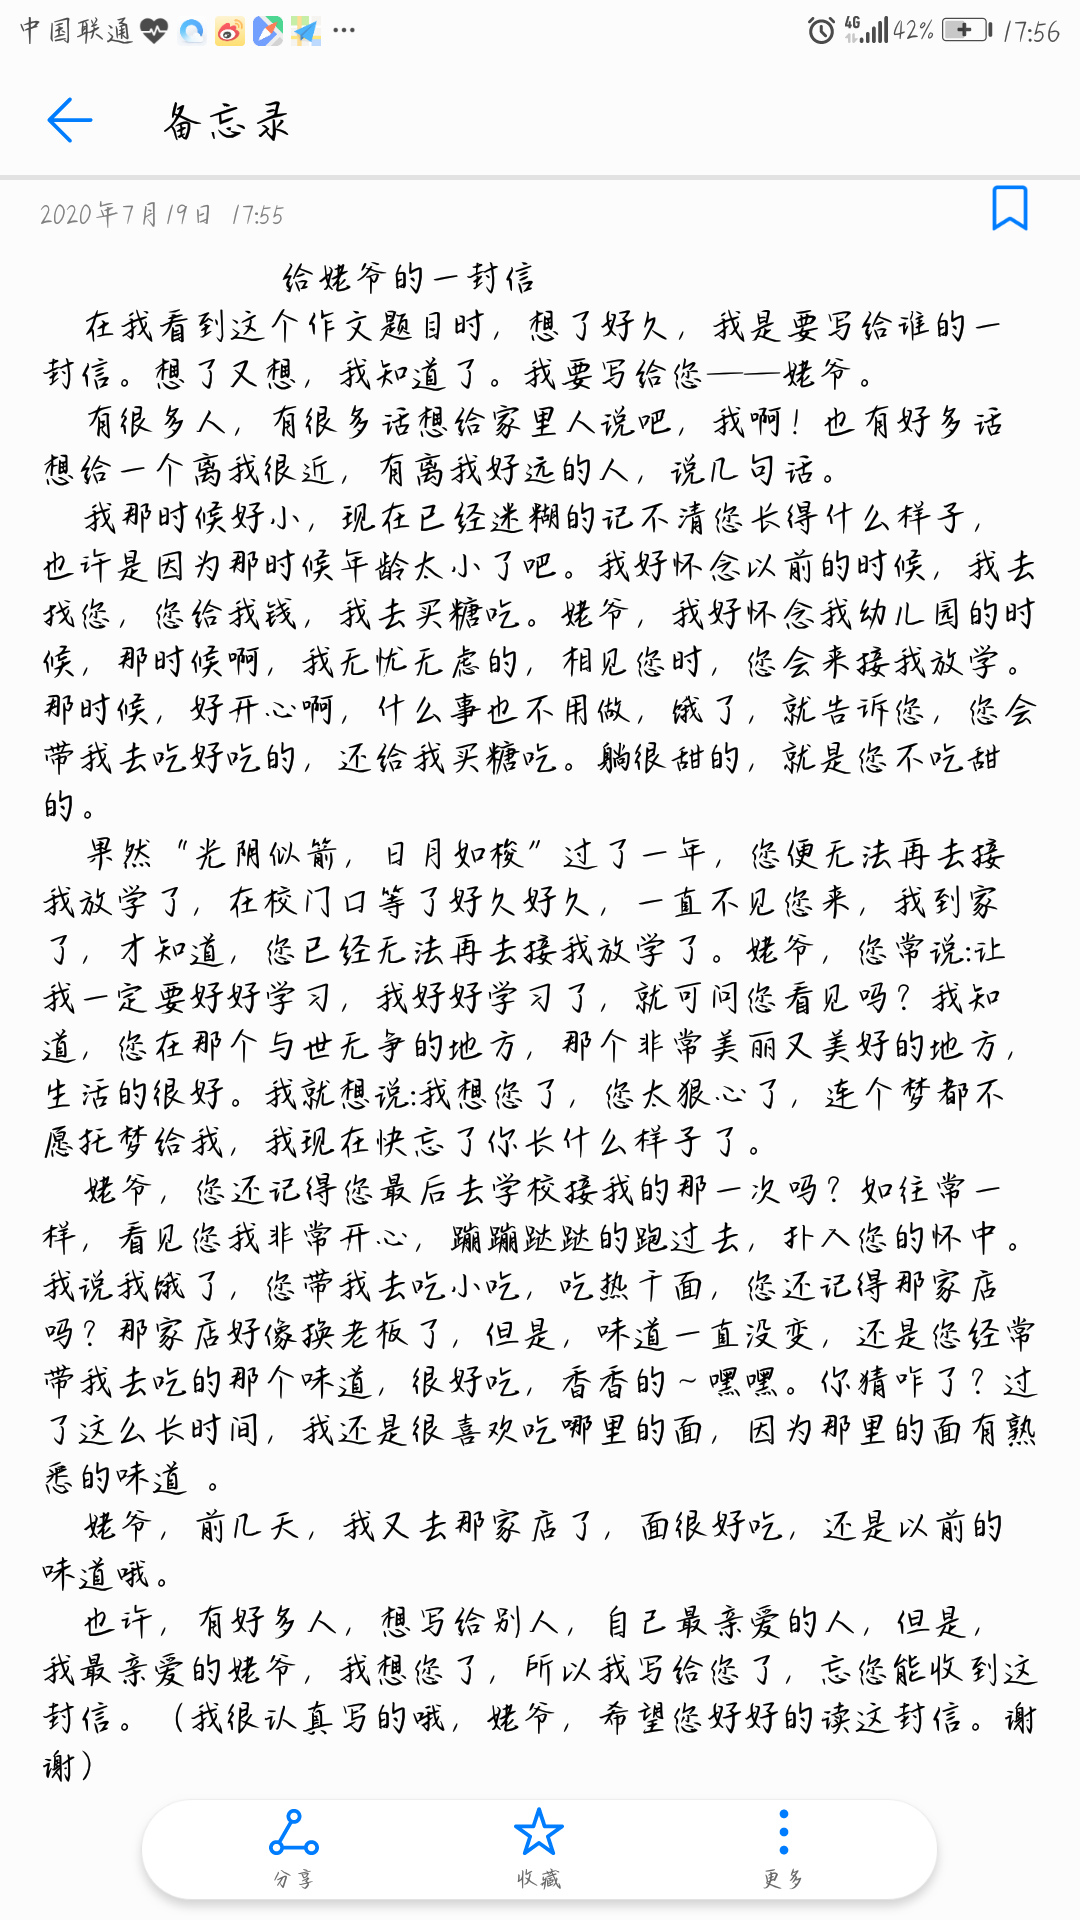 中国联通 ... 4G 42% 17:56
备忘录
2020年7月19日 17:55
给姥爷的一封信
在我看到这个作文题目时，想了好久，我是要写给谁的一
封信。想了又想，我知道了。我要写给您——姥爷。
有很多人，有很多话想给家里人说吧，我啊！也有好多话
想给一个离我很近，有离我好远的人，说几句话。
我那时候好小，现在已经迷糊的记不清您长得什么样子，
也许是因为那时候年龄太小了吧。我好怀念以前的时候，我去
找您，您给我钱，我去买糖吃。姥爷，我好怀念我幼儿园的时
候，那时候啊，我无忧无虑的，相见您时，您会来接我放学。
那时候，好开心啊，什么事也不用做，饿了，就告诉您，您会
带我去吃好吃的，还给我买糖吃。躺很甜的，就是您不吃甜
的。
果然“光阴似箭，日月如梭”过了一年，您便无法再去接
我放学了，在校门口等了好久好久，一直不见您来，我到家
了，才知道，您已经无法再去接我放学了。姥爷，您常说:让
我一定要好好学习，我好好学习了，就可问您看见吗？我知
道，您在那个与世无争的地方，那个非常美丽又美好的地方，
生活的很好。我就想说:我想您了，您太狠心了，连个梦都不
愿托梦给我，我现在快忘了你长什么样子了。
姥爷，您还记得您最后去学校接我的那一次吗？如往常一
样，看见您我非常开心，蹦蹦跶跶的跑过去，扑入您的怀中。
我说我饿了，您带我去吃小吃，吃热干面，您还记得那家店
吗？那家店好像换老板了，但是，味道一直没变，还是您经常
带我去吃的那个味道，很好吃，香香的～嘿嘿。你猜咋了？过
了这么长时间，我还是很喜欢吃哪里的面，因为那里的面有熟
悉的味道 。
姥爷，前几天，我又去那家店了，面很好吃，还是以前的
味道哦。
也许，有好多人，想写给别人，自己最亲爱的人，但是，
我最亲爱的姥爷，我想您了，所以我写给您了，忘您能收到这
封信。（我很认真写的哦，姥爷，希望您好好的读这封信。谢
谢）
分享 收藏 更多